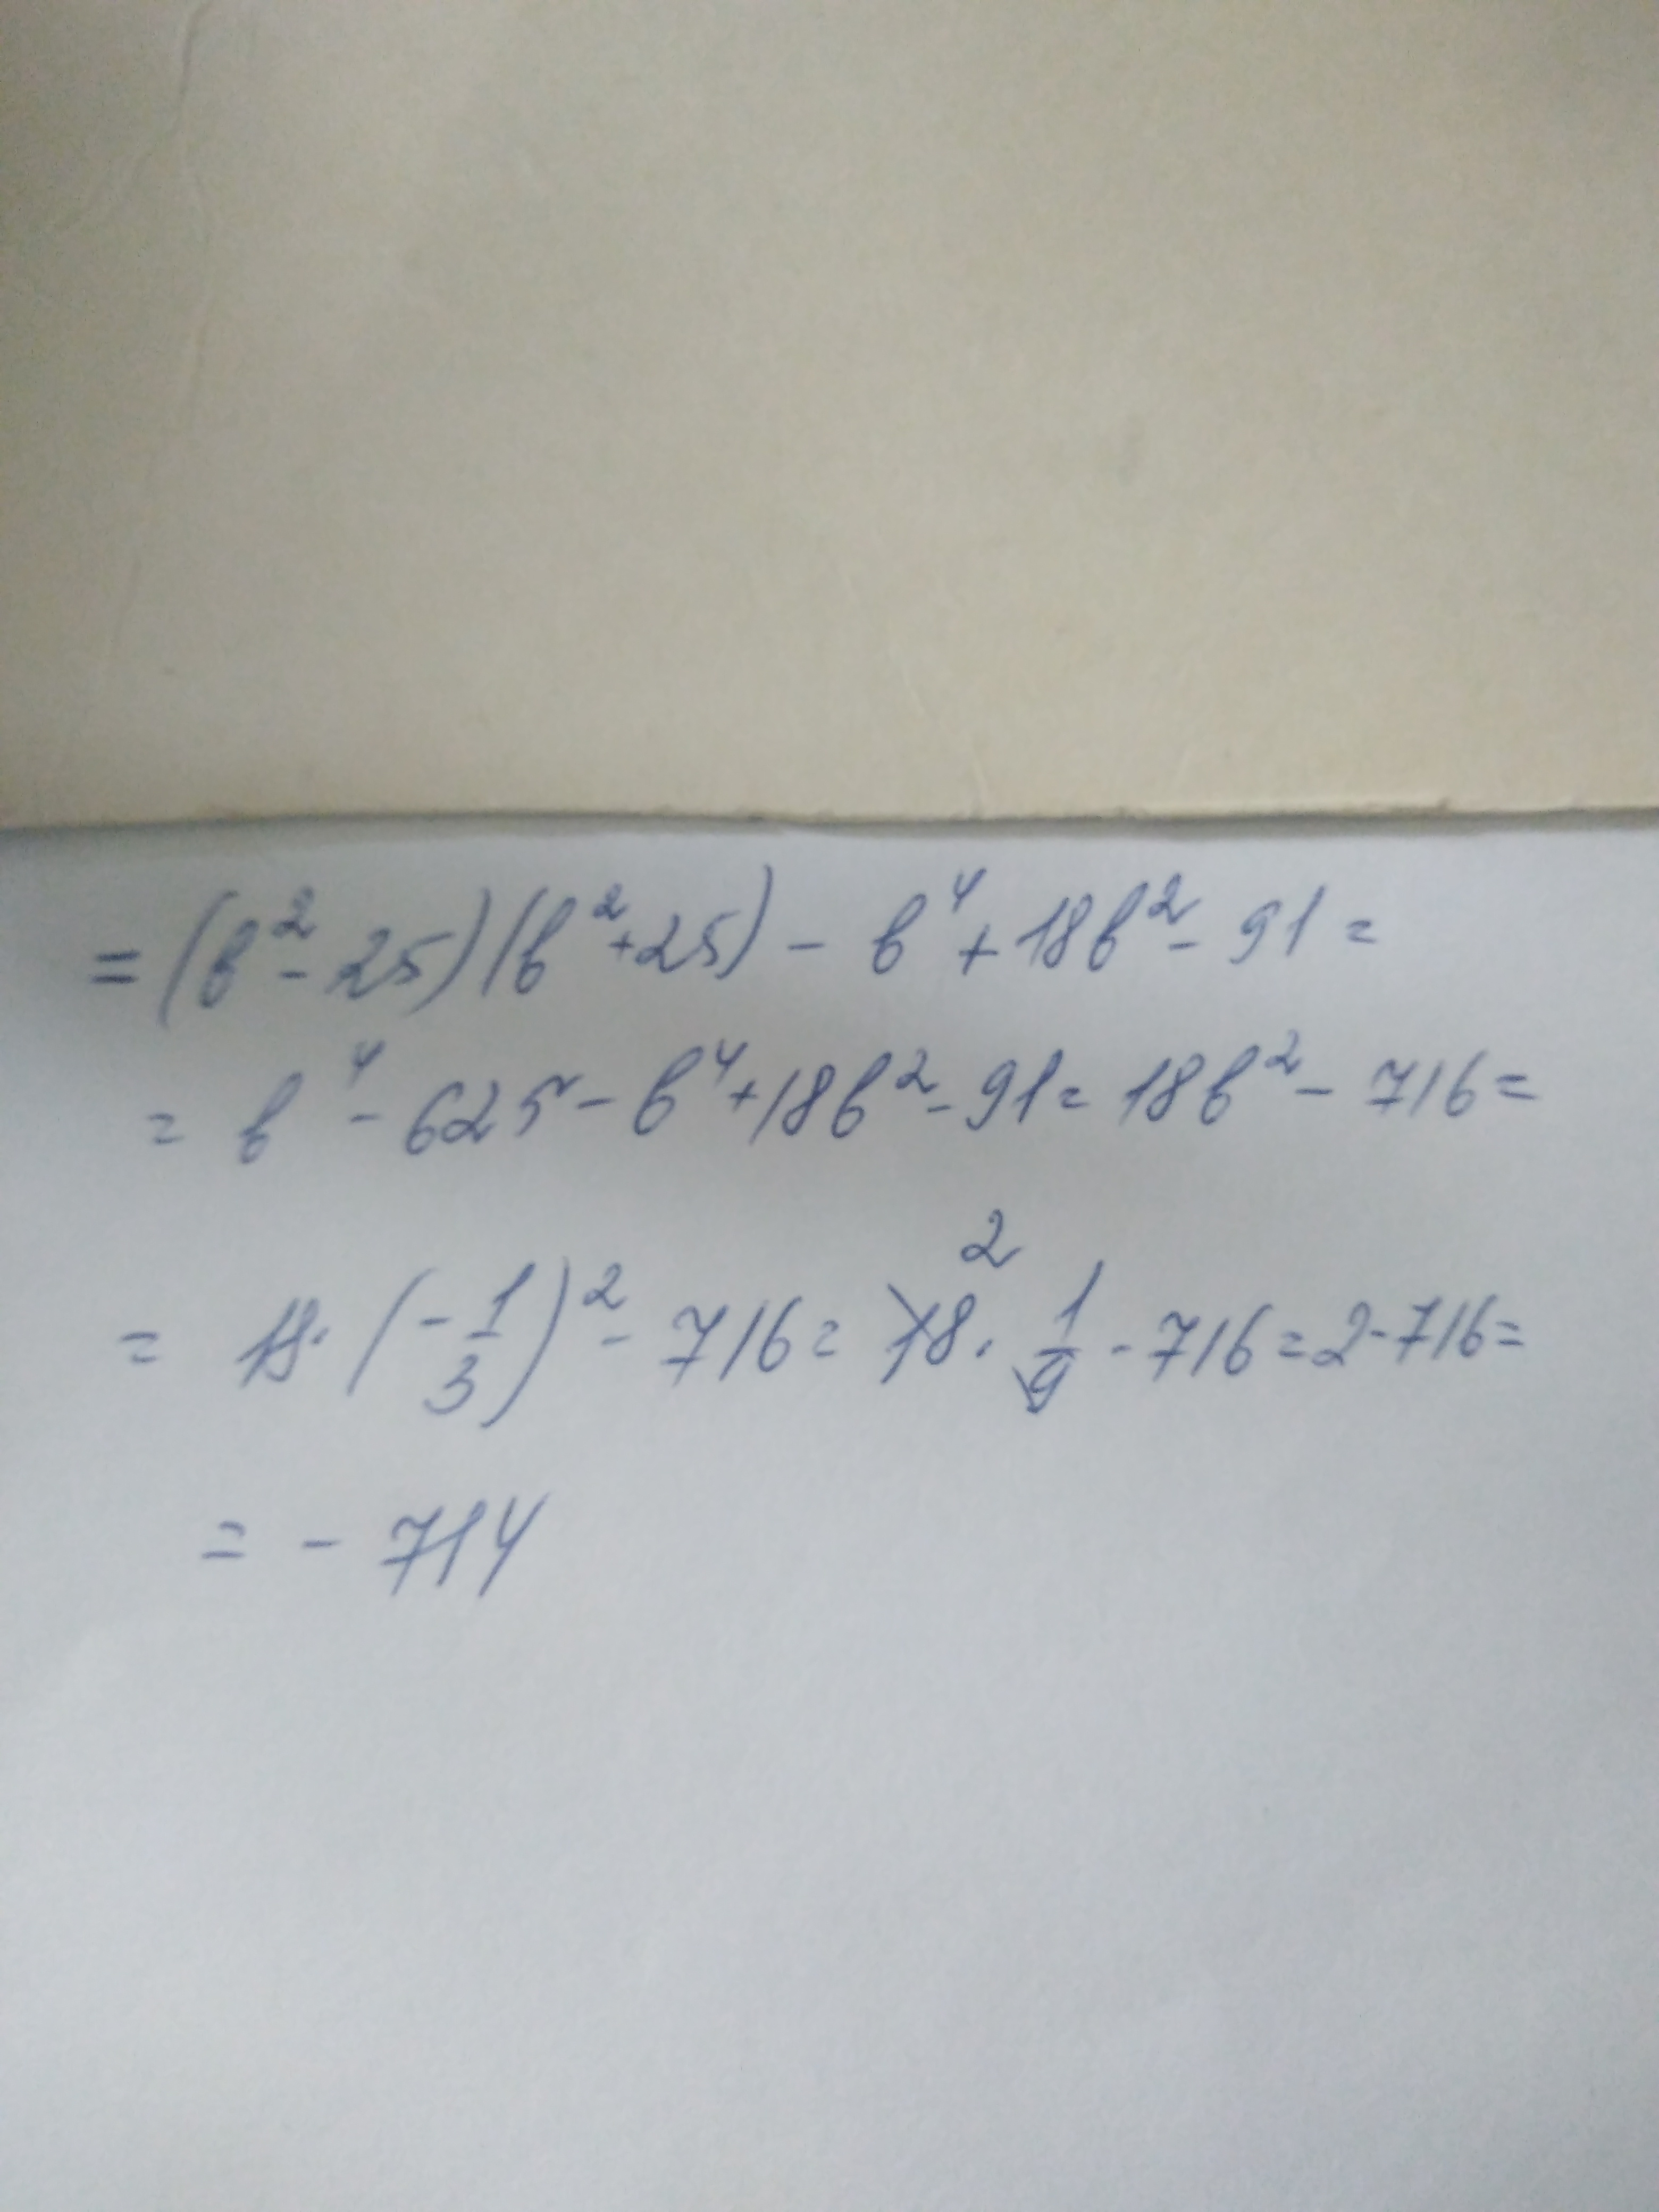 = (b² - 25)(b² + 25) - b⁴ + 18b² - 91 =
= b⁴ - 625 - b⁴ + 18b² - 91 = 18b² - 716 =
= 18 · (-1/3)² - 716 = 18² · 1/9 - 716 = 2 - 716 =
= - 714